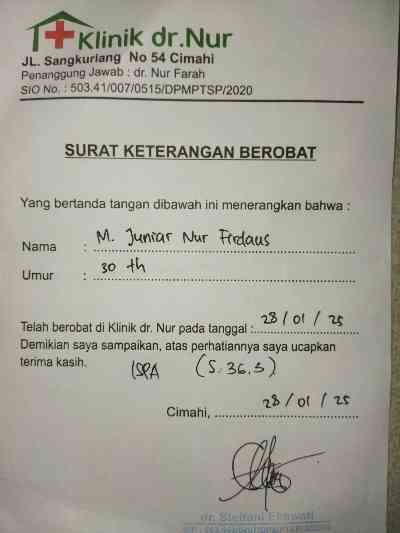 Klinik dr.Nur
JL. Sangkuriang No 54 Cimahi
Penanggung Jawab : dr. Nur Farah
SIO No. : 503.41/007/0515/DPMPTSP/2020
SURAT KETERANGAN BEROBAT
Yang bertanda tangan dibawah ini menerangkan bahwa :
Nama : M. Juniar Nur Firdaus
Umur : 30 th
Telah berobat di Klinik dr. Nur pada tanggal : 28 / 01 / 25
Demikian saya sampaikan, atas perhatiannya saya ucapkan
terima kasih. ISPA (S. 36.5)
Cimahi, 28 / 01 / 25
dr. Steffani